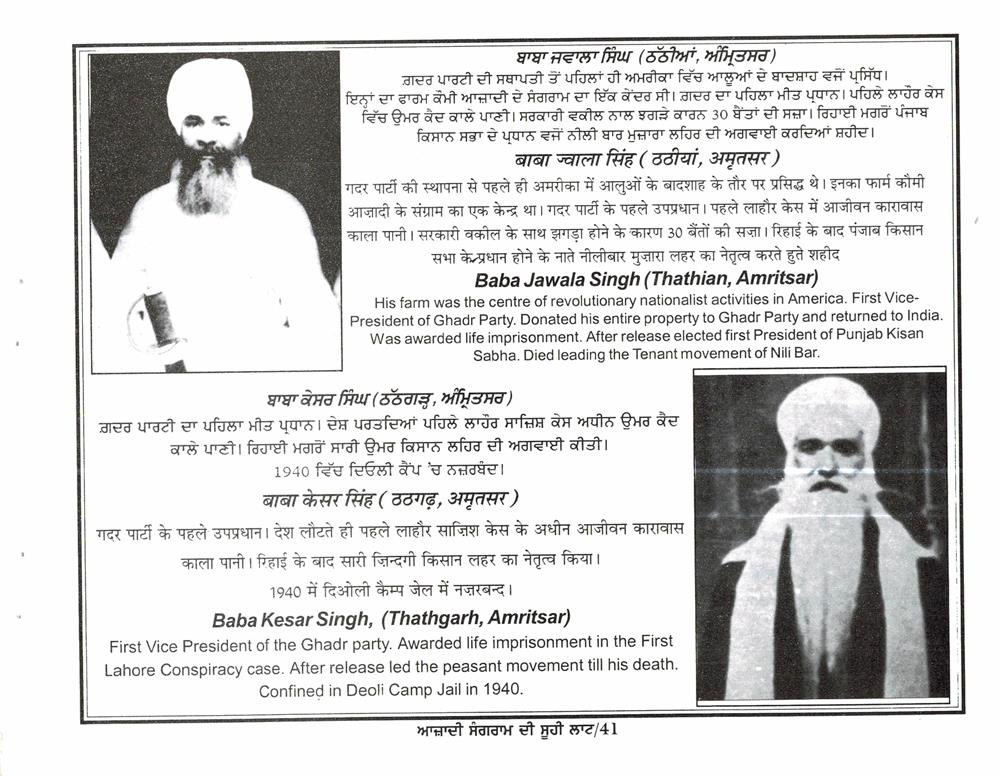 ਬਾਬਾ ਜਵਾਲਾ ਸਿੰਘ (ਠੱਠੀਆਂ, ਅੰਮ੍ਰਿਤਸਰ)
ਗ਼ਦਰ ਪਾਰਟੀ ਦੀ ਸਥਾਪਤੀ ਤੋਂ ਪਹਿਲਾਂ ਹੀ ਅਮਰੀਕਾ ਵਿੱਚ ਆਲੂਆਂ ਦੇ ਬਾਦਸ਼ਾਹ ਵਜੋਂ ਪ੍ਰਸਿੱਧ।
ਇਨ੍ਹਾਂ ਦਾ ਫਾਰਮ ਕੌਮੀ ਆਜ਼ਾਦੀ ਦੇ ਸੰਗਰਾਮ ਦਾ ਇੱਕ ਕੇਂਦਰ ਸੀ। ਗ਼ਦਰ ਦਾ ਪਹਿਲਾ ਮੀਤ ਪ੍ਰਧਾਨ। ਪਹਿਲੇ ਲਾਹੌਰ ਕੇਸ
ਵਿੱਚ ਉਮਰ ਕੈਦ ਕਾਲੇ ਪਾਣੀ। ਸਰਕਾਰੀ ਵਕੀਲ ਨਾਲ ਝਗੜੇ ਕਾਰਨ 30 ਬੈਂਤਾਂ ਦੀ ਸਜ਼ਾ। ਰਿਹਾਈ ਮਗਰੋਂ ਪੰਜਾਬ
ਕਿਸਾਨ ਸਭਾ ਦੇ ਪ੍ਰਧਾਨ ਵਜੋਂ ਨੀਲੀ ਬਾਰ ਮੁਜ਼ਾਰਾ ਲਹਿਰ ਦੀ ਅਗਵਾਈ ਕਰਦਿਆਂ ਸ਼ਹੀਦ।
बाबा ज्वाला सिंह ( ठठीयां, अमृतसर )
गदर पार्टी की स्थापना से पहले ही अमरीका में आलुओं के बादशाह के तौर पर प्रसिद्ध थे। इनका फार्म कौमी
आज़ादी के संग्राम का एक केन्द्र था। गदर पार्टी के पहले उपप्रधान। पहले लाहौर केस में आजीवन कारावास
काला पानी। सरकारी वकील के साथ झगड़ा होने के कारण 30 बैंतों की सज़ा। रिहाई के बाद पंजाब किसान
सभा के प्रधान होने के नाते नीलीबार मुज़ारा लहर का नेतृत्व करते हुते शहीद
Baba Jawala Singh (Thathian, Amritsar)
His farm was the centre of revolutionary nationalist activities in America. First Vice-
President of Ghadr Party. Donated his entire property to Ghadr Party and returned to India.
Was awarded life imprisonment. After release elected first President of Punjab Kisan
Sabha. Died leading the Tenant movement of Nili Bar.
ਬਾਬਾ ਕੇਸਰ ਸਿੰਘ (ਠੱਠਗੜ੍ਹ, ਅੰਮ੍ਰਿਤਸਰ)
ਗ਼ਦਰ ਪਾਰਟੀ ਦਾ ਪਹਿਲਾ ਮੀਤ ਪ੍ਰਧਾਨ। ਦੇਸ਼ ਪਰਤਦਿਆਂ ਪਹਿਲੇ ਲਾਹੌਰ ਸਾਜ਼ਿਸ਼ ਕੇਸ ਅਧੀਨ ਉਮਰ ਕੈਦ
ਕਾਲੇ ਪਾਣੀ। ਰਿਹਾਈ ਮਗਰੋਂ ਸਾਰੀ ਉਮਰ ਕਿਸਾਨ ਲਹਿਰ ਦੀ ਅਗਵਾਈ ਕੀਤੀ।
1940 ਵਿੱਚ ਦਿਓਲੀ ਕੈਂਪ 'ਚ ਨਜ਼ਰਬੰਦ।
बाबा केसर सिंह ( ठठगढ़, अमृतसर )
गदर पार्टी के पहले उपप्रधान। देश लौटते ही पहले लाहौर साज़िश केस के अधीन आजीवन कारावास
काला पानी। रिहाई के बाद सारी ज़िन्दगी किसान लहर का नेतृत्व किया।
1940 में दिओली कैम्प जेल में नज़रबन्द।
Baba Kesar Singh, (Thathgarh, Amritsar)
First Vice President of the Ghadr party. Awarded life imprisonment in the First
Lahore Conspiracy case. After release led the peasant movement till his death.
Confined in Deoli Camp Jail in 1940.
ਆਜ਼ਾਦੀ ਸੰਗਰਾਮ ਦੀ ਸੂਹੀ ਲਾਟ/41